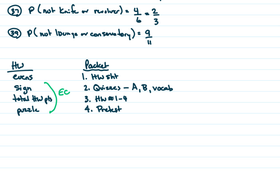 37) P(not knife or revolver) = 4/6 = 2/3
39) P(not lounge or conservatory) = 9/11
HW
evens
sign
total HW pts
puzzle
EC
Packet
1. HW sht
2. Quizzes - A, B, vocab
3. HW #1-9
4. Pretest